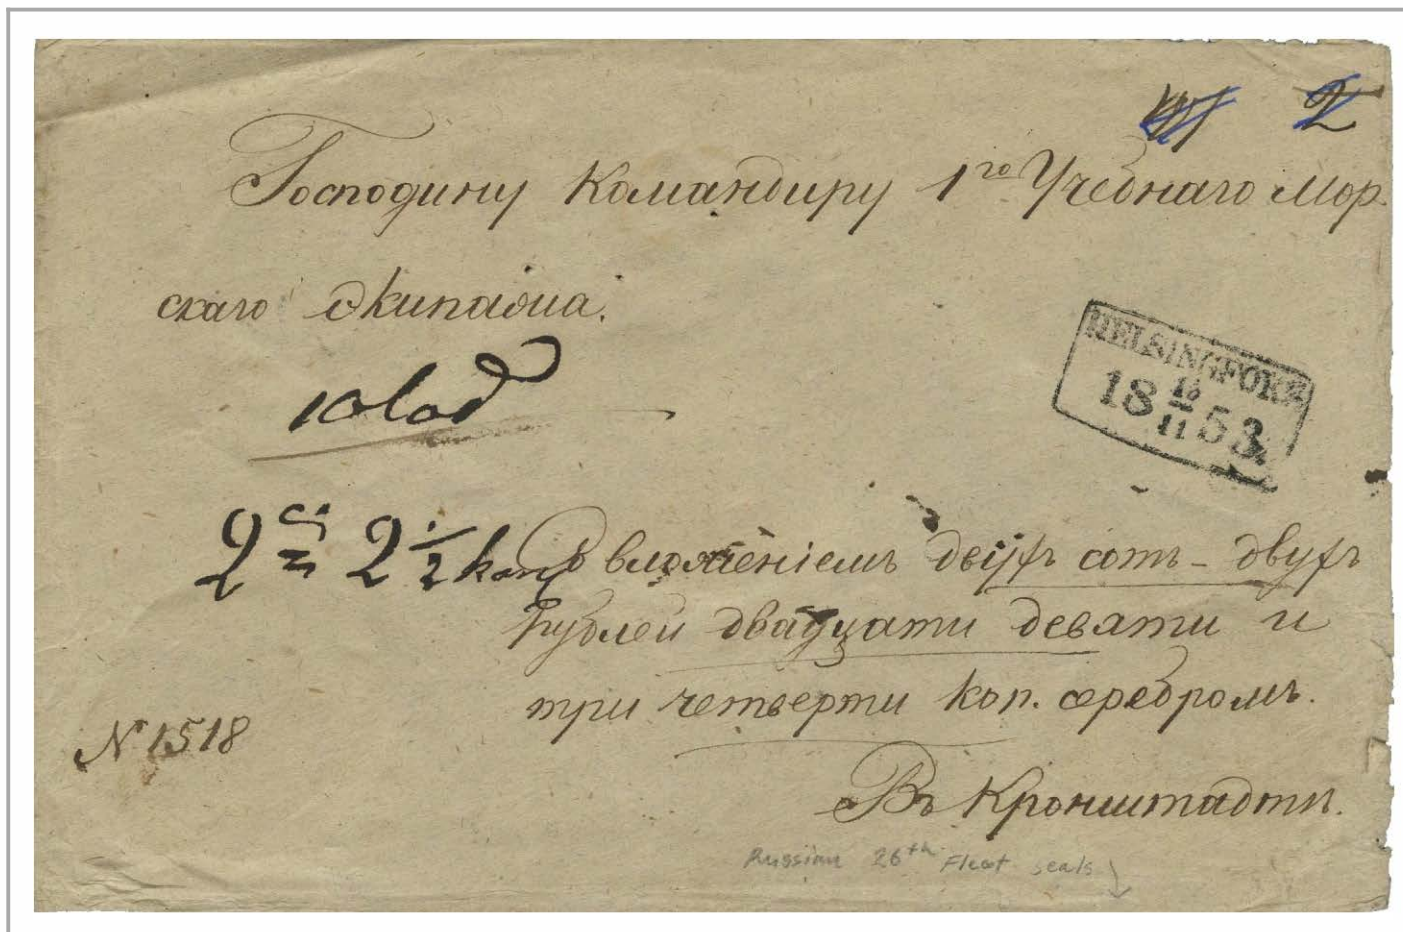 2
Господину Командиру 1го Учебнаго Мор.
скаго Экипажа.
HELSINGFORS
18 16/11 53.
10 lod
2 1/2 kop
Съ вложеніемъ двухъ сотъ - двухъ
рублей двадцати девяти и
три четверти коп. серебромъ.
N 1518
Въ Кронштадтъ.
Russian 26th Fleet seals